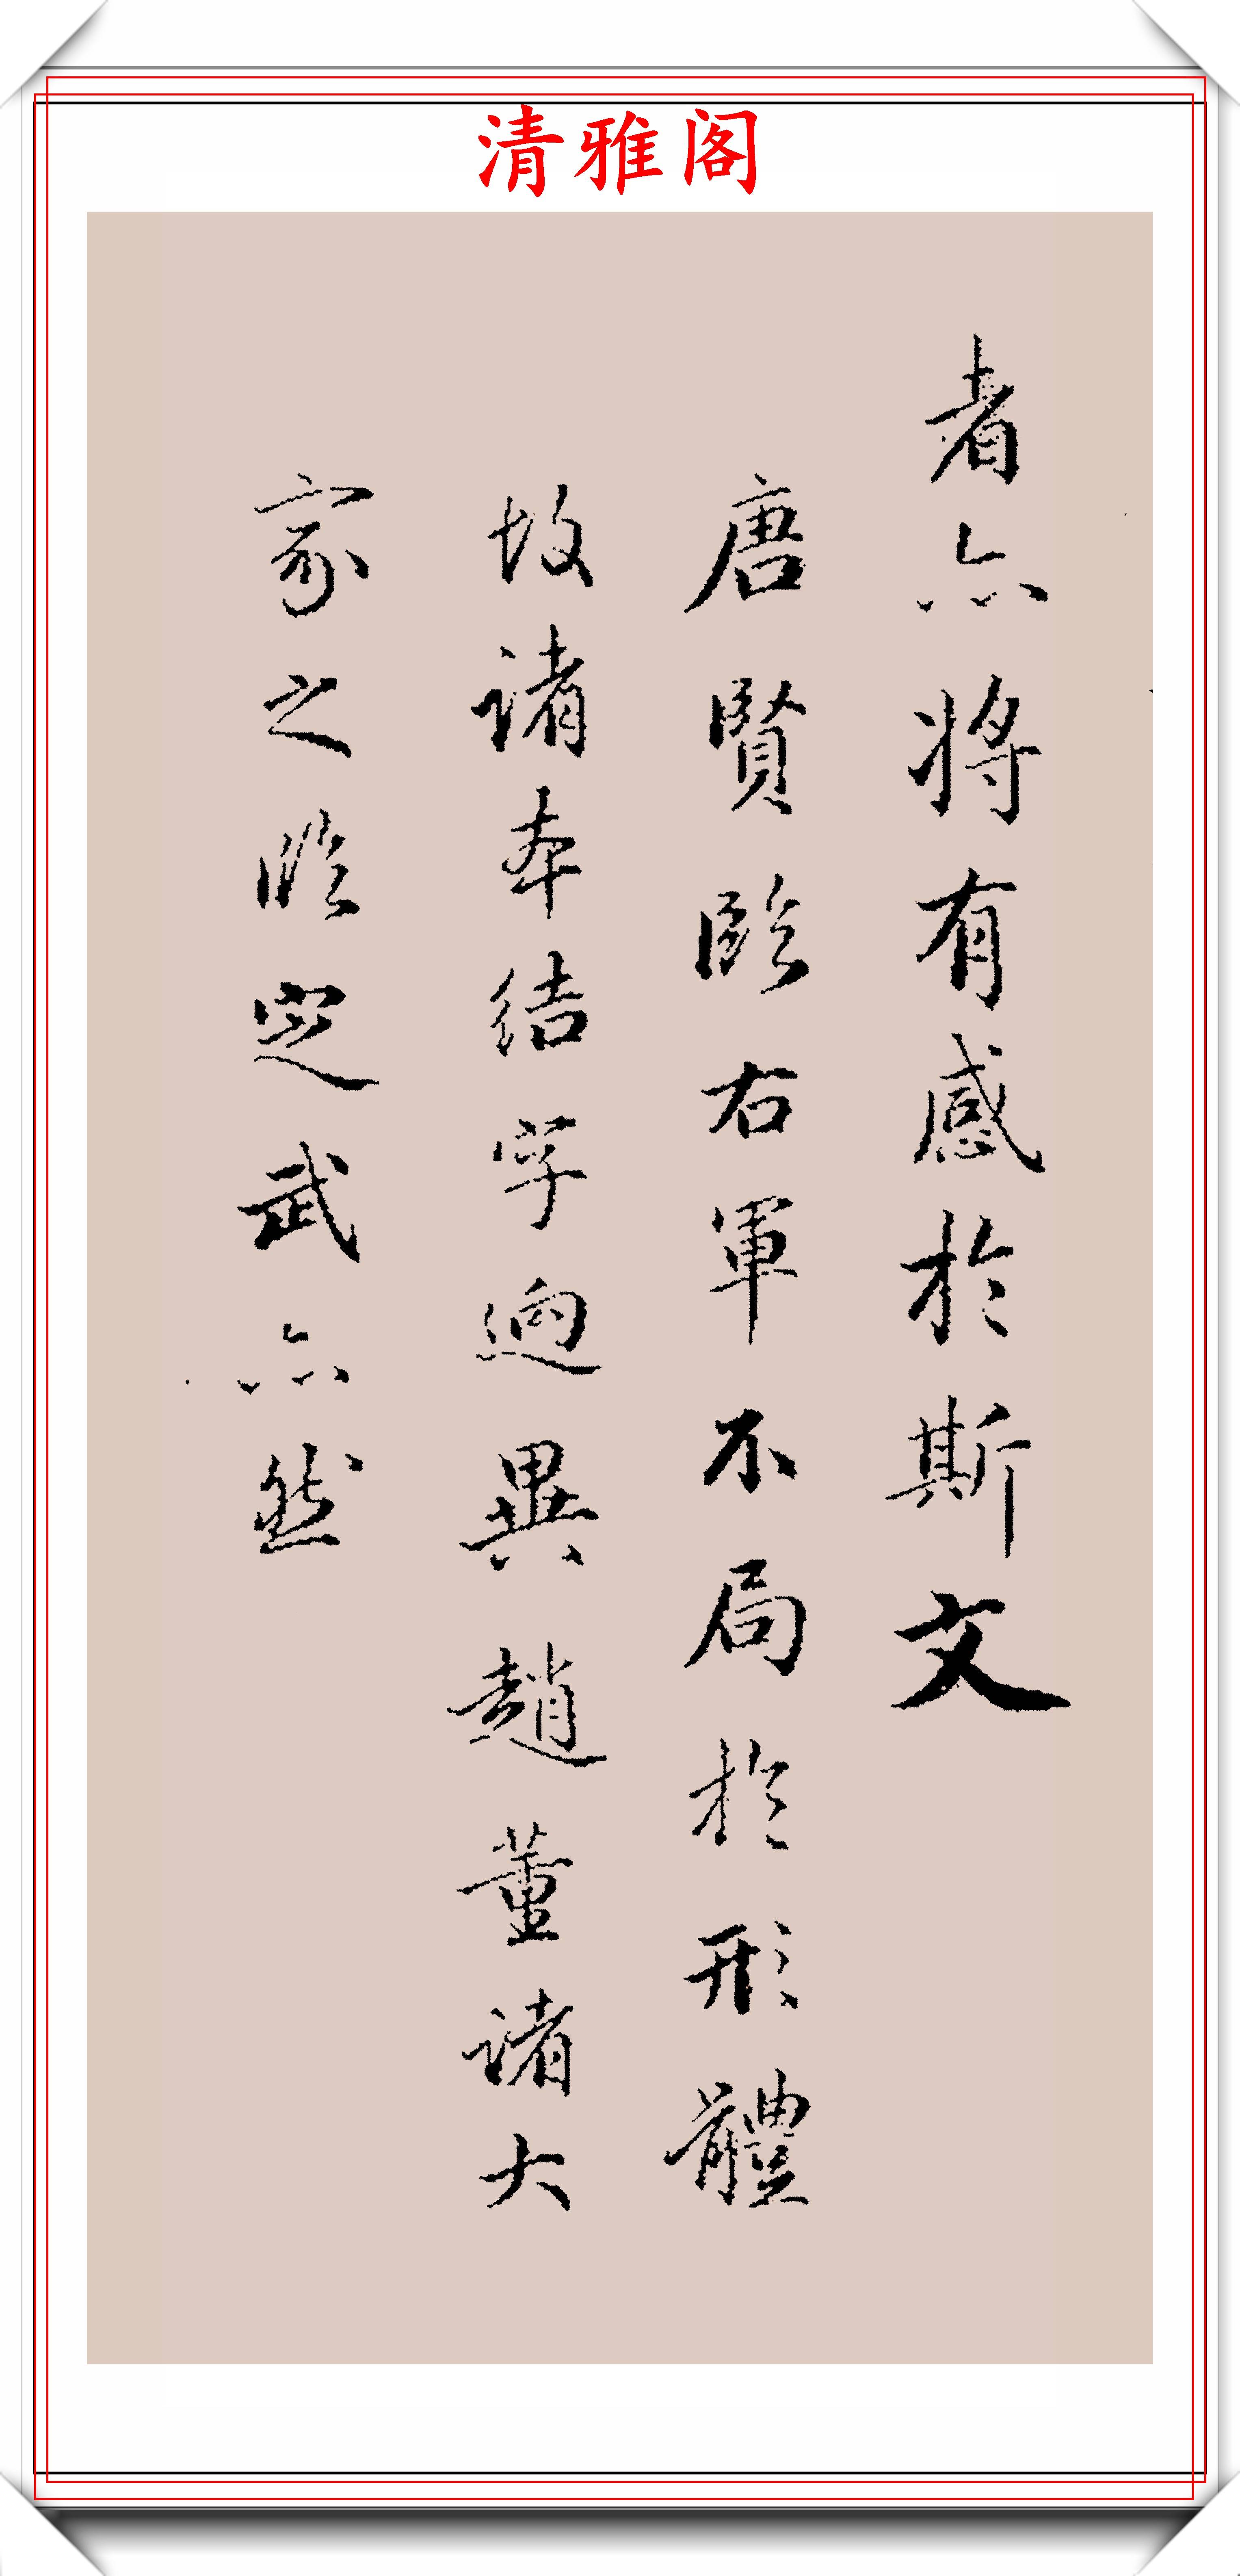 清雅阁
者亦将有感於斯文
唐賢臨右軍不局於形體
故諸本结字迥異趙董諸大
家之臨定武亦然